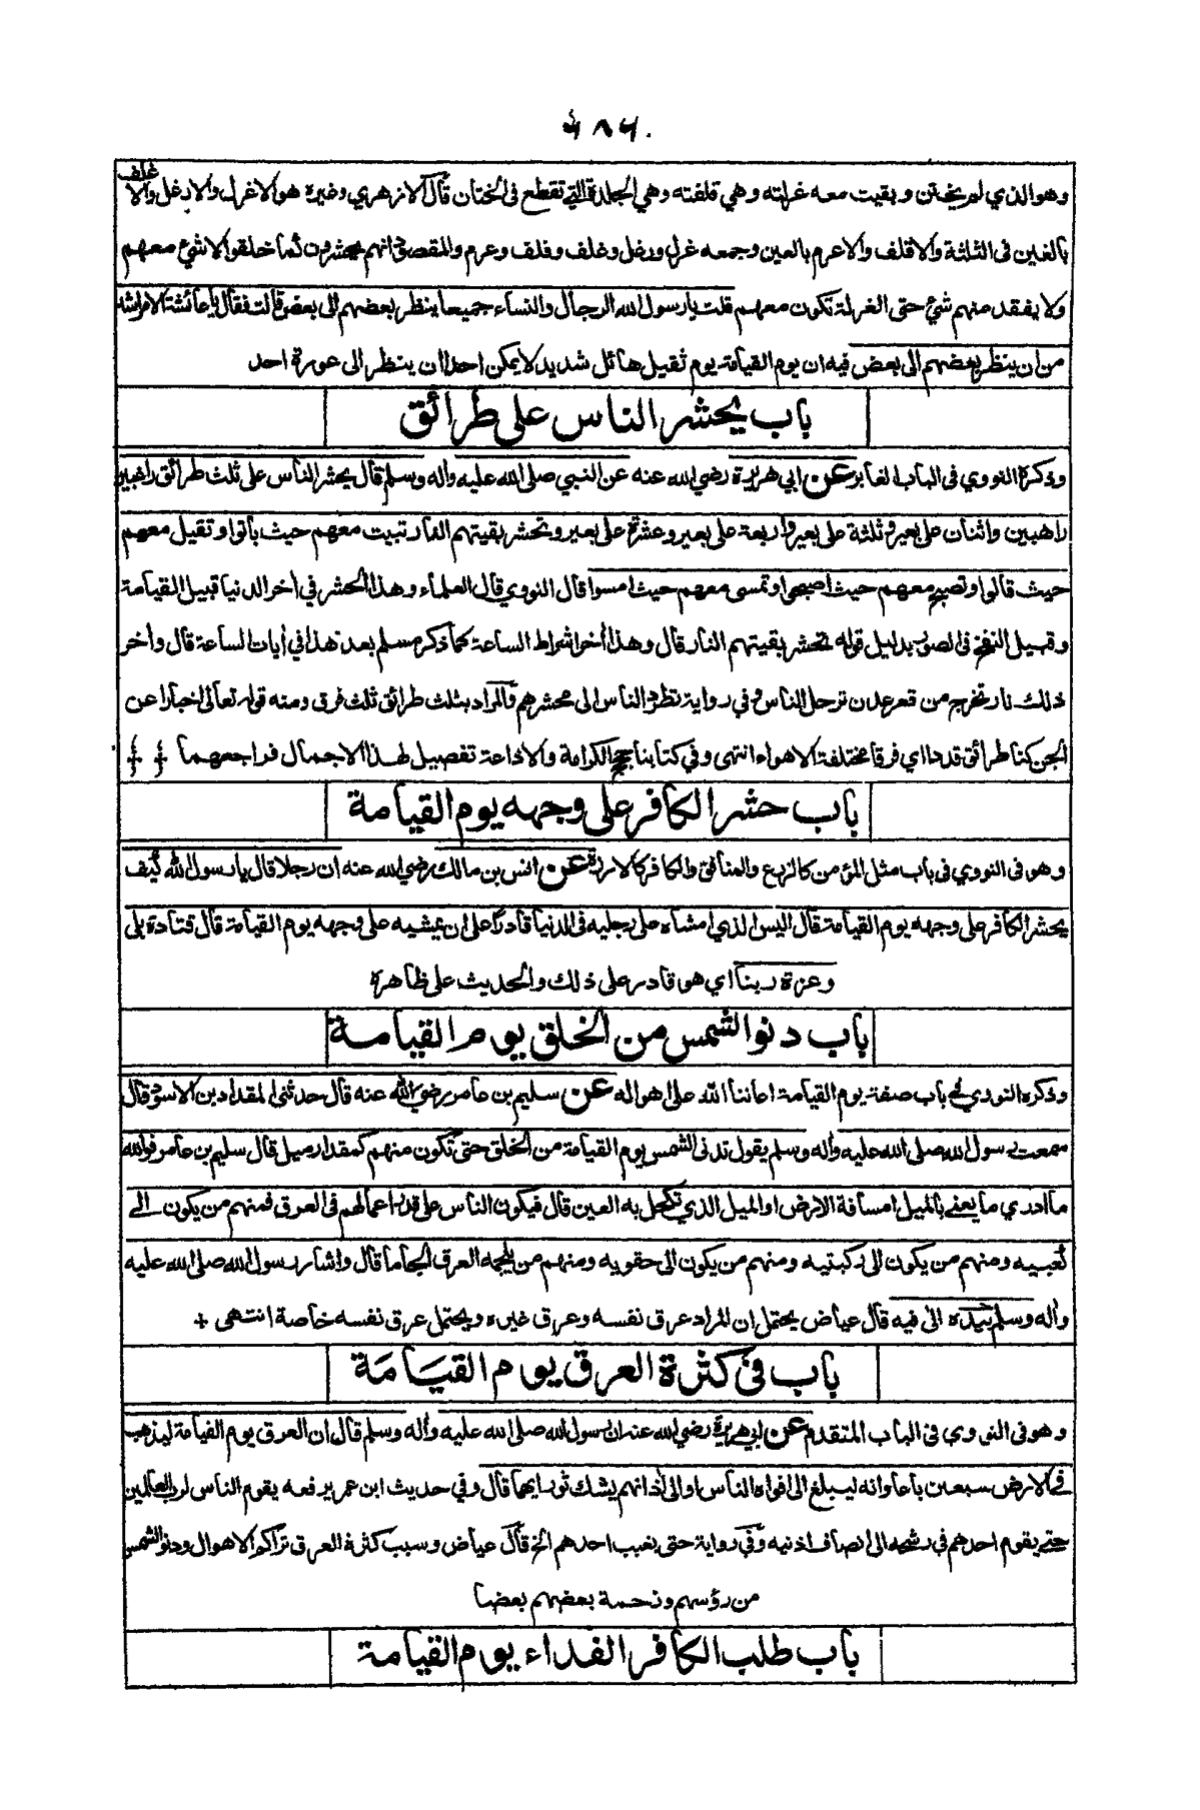 وهو الذي لم يختن وبقيت معه غرلته وهي قلفته وهي الجلدة التي تقطع فى الختان قال الازهري وغيره هو الاغرل والارغل والا
غلف
بالغين فى الثلثة والاقلف والاعرم بالعين وجمعه غرل ورغل وغلف وقلف وعرم والمقصود انهم يحشرون كما خلقوا لا شيء معهم
ولا يفقد منهم شيء حتى الغرلة تكون معهم قلت يا رسول الله الرجال والنساء جميعا ينظر بعضهم الى بعض قالت فقال يا عائشة الامر اشد
من ان ينظر بعضهم الى بعض فيه ان يوم القيامة يوم ثقيل هائل شديد لا يمكن احدا ان ينظر الى عورة احد
باب يحشر الناس على طرائق
وذكره النووي فى الباب الغابر عن ابي هريرة رضي الله عنه عن النبي صلى الله عليه واله وسلم قال يحشر الناس على ثلث طرائق راغبين
راهبين واثنان على بعير وثلثة على بعير واربعة على بعير وعشرة على بعير وتحشر بقيتهم النار تبيت معهم حيث باتوا وتقيل معهم
حيث قالوا وتصبح معهم حيث اصبحوا وتمسى معهم حيث امسوا قال النووي قال العلماء وهذا الحشر في اخر الدنيا قبيل القيامة
وقبيل النفخ فى الصور بدليل قوله تحشر بقيتهم النار قال وهذا اخر اشراط الساعة كما ذكر مسلم بعد هذا في ايات الساعة قال واخر
ذلك نار تخرج من قعر عدن ترحل الناس وفي رواية تطرد الناس الى محشرهم والمراد بثلث طرائق ثلث فرق ومنه قوله تعالى اخبارا عن
الجن كنا طرائق قددا اي فرقا مختلفة الاهواء انتهى وفي كتابنا حجج الكرامة والاذاعة تفصيل لهذا الاجمال فراجعهما
باب حشر الكافر على وجهه يوم القيامة
وهو فى النووي فى باب مثل المؤمن كالزرع والمنافق والكافر كالارزة عن انس بن مالك رضي الله عنه ان رجلا قال يا رسول الله كيف
يحشر الكافر على وجهه يوم القيامة قال اليس الذي امشاه على رجليه فى الدنيا قادرا على ان يمشيه على وجهه يوم القيامة قال قتادة بلى
وعزة ربنا اي هو قادر على ذلك والحديث على ظاهره
باب دنو الشمس من الخلق يوم القيامة
وذكره النووي في باب صفة يوم القيامة اعاننا الله على اهواله عن سليم بن عامر رضي الله عنه قال حدثنى المقداد بن الاسود قال
سمعت رسول الله صلى الله عليه واله وسلم يقول تدنى الشمس يوم القيامة من الخلق حتى تكون منهم كمقدار ميل قال سليم بن عامر فوالله
ما ادري ما يعنى بالميل امسافة الارض او الميل الذي تكتحل به العين قال فيكون الناس على قدر اعمالهم فى العرق فمنهم من يكون الى
كعبيه ومنهم من يكون الى ركبتيه ومنهم من يكون الى حقويه ومنهم من يلجمه العرق الجاما قال واشار رسول الله صلى الله عليه
واله وسلم بيده الى فيه قال عياض يحتمل ان المراد عرق نفسه وعرق غيره ويحتمل عرق نفسه خاصة انتهى +
باب فى كثرة العرق يوم القيامة
وهو فى النووي فى الباب المتقدم عن ابي هريرة رضي الله عنه ان رسول الله صلى الله عليه واله وسلم قال ان العرق يوم القيامة ليذهب
فى الارض سبعين باعا وانه ليبلغ الى افواه الناس او الى اذانهم يشك ثور ايهما قال وفي حديث ابن عمر يرفعه يقوم الناس لرب العالمين
حتى يقوم احدهم في رشحه الى انصاف اذنيه وفي رواية حتى يغيب احدهم الخ قال عياض وسبب كثرة العرق تراكم الاهوال ودنو الشمس
من رؤسهم وزحمة بعضهم بعضا
باب طلب الكافر الفداء يوم القيامة